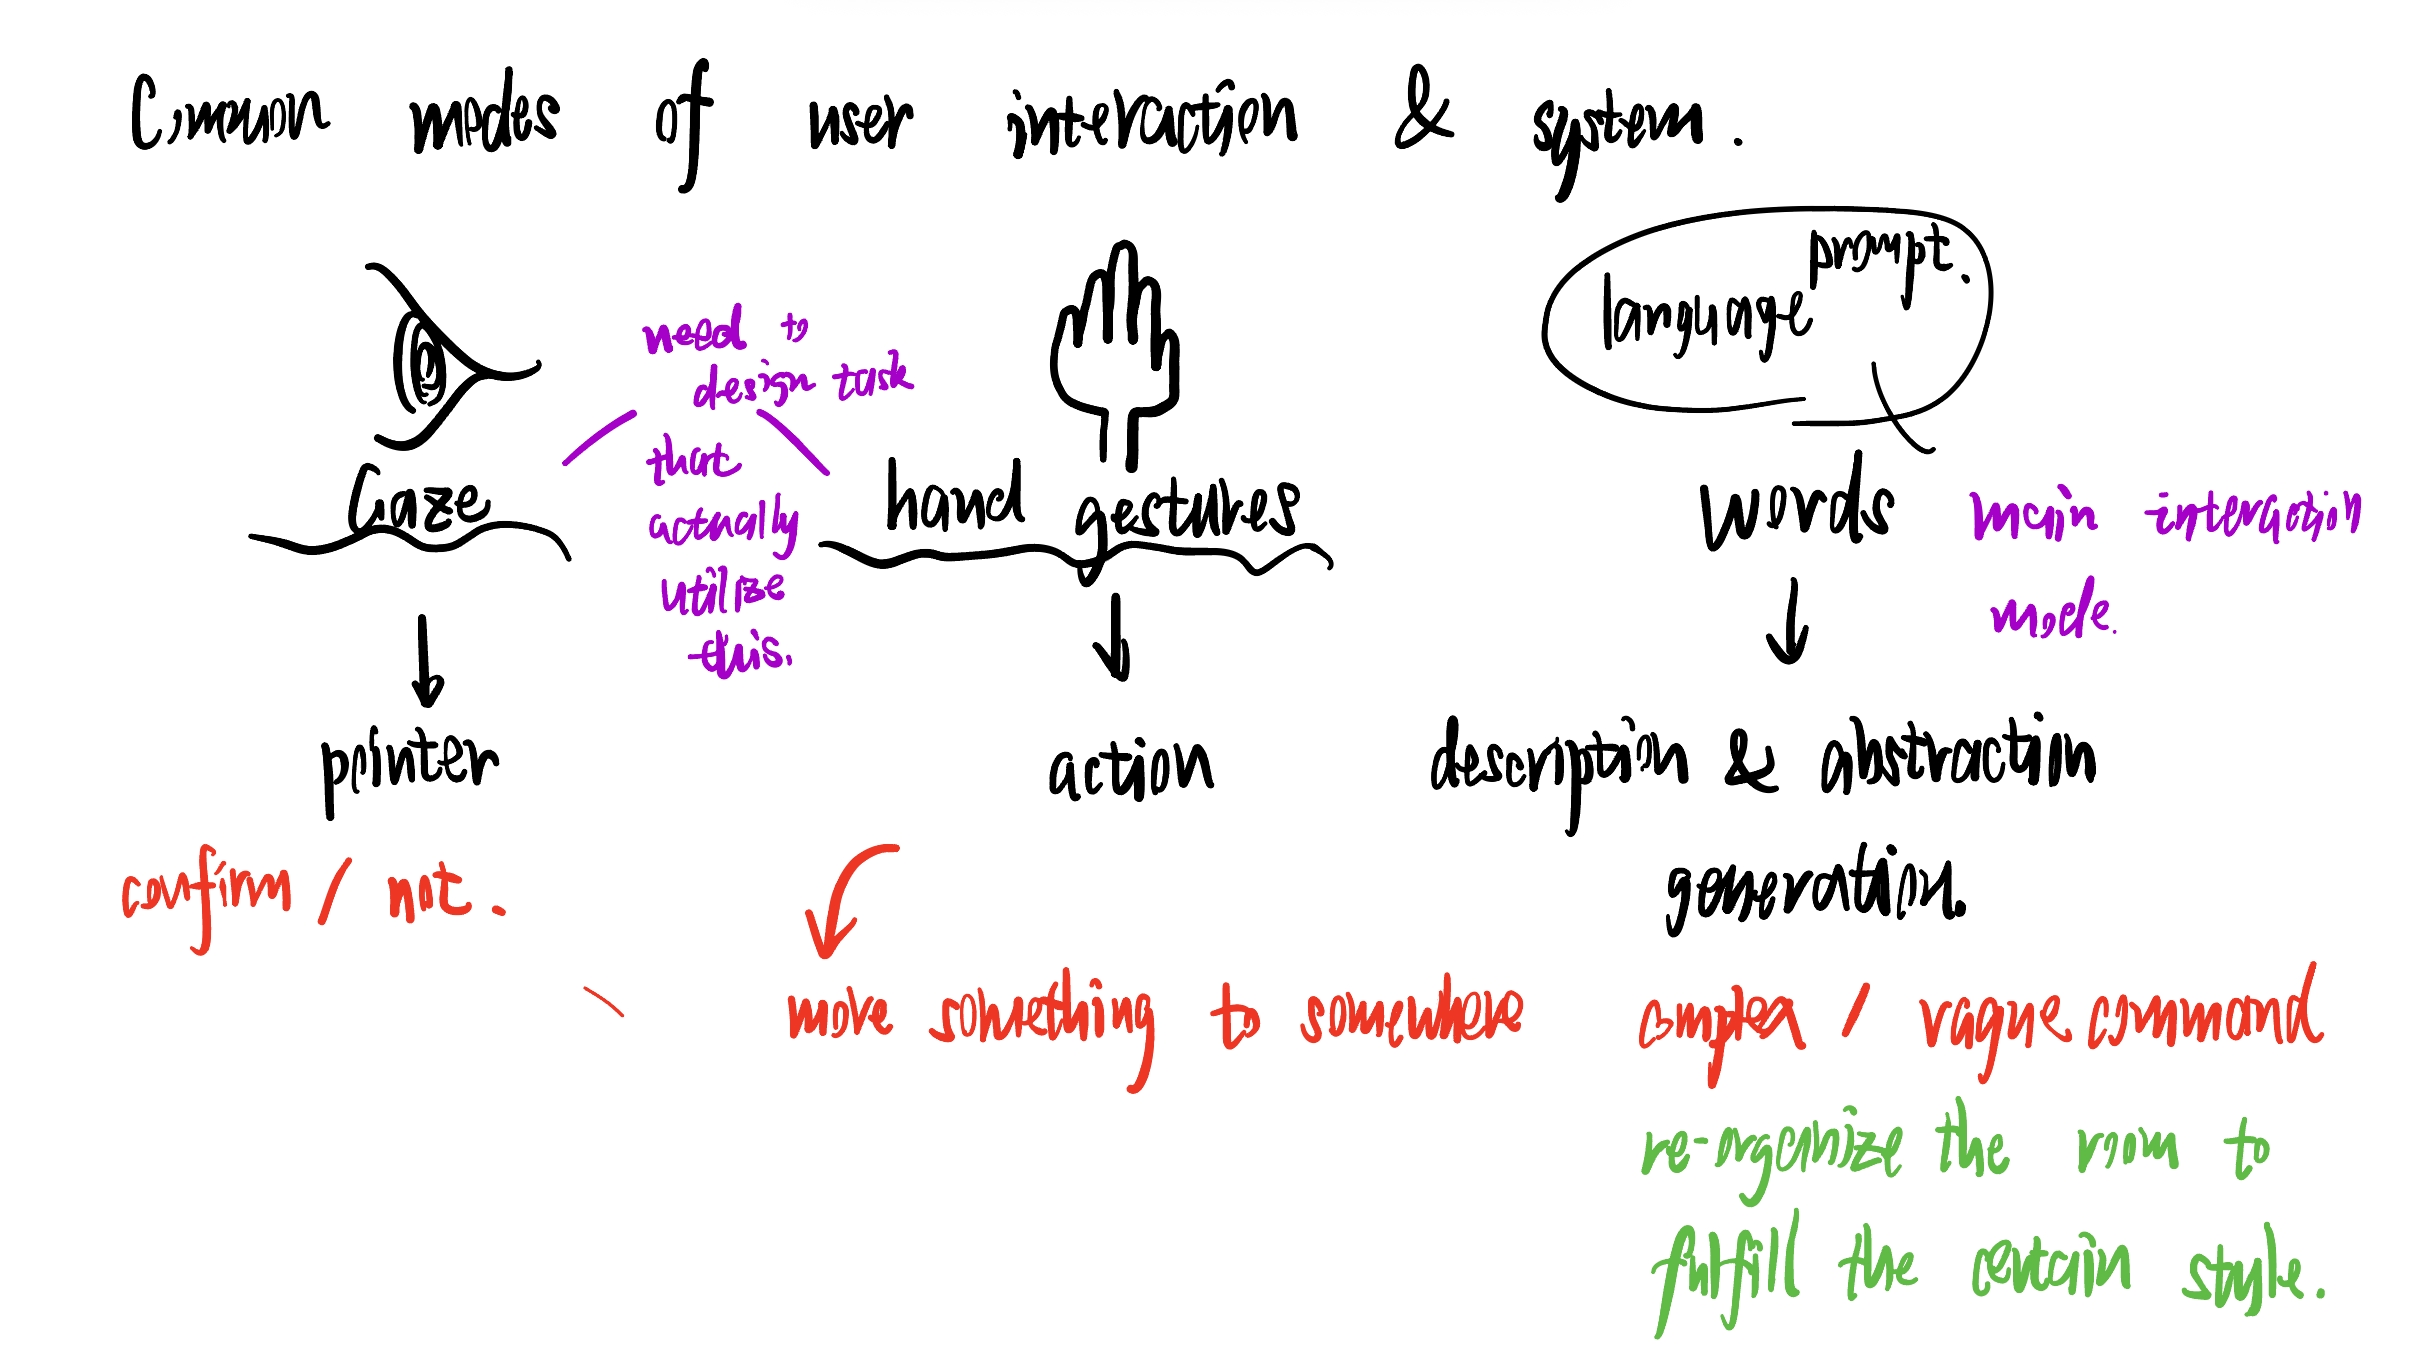 Common modes of user interaction & system.
prompt.
language
need to
design task
that
actually
utilize
this.
Gaze
hand gestures
words
main interaction
mode.
pointer
action
description & abstraction
generation.
confirm / not.
move something to somewhere
complex / vague command
re-organize the room to
fulfill the certain style.